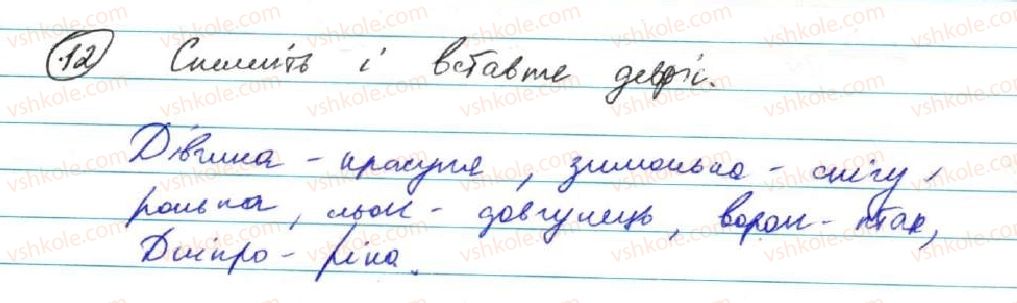 12 Спишіть і вставте дефіс.
Дівчина - красуня, зимонька - снігу-
ронька, льон - довгунець, ворон - птах,
Дніпро - ріка.